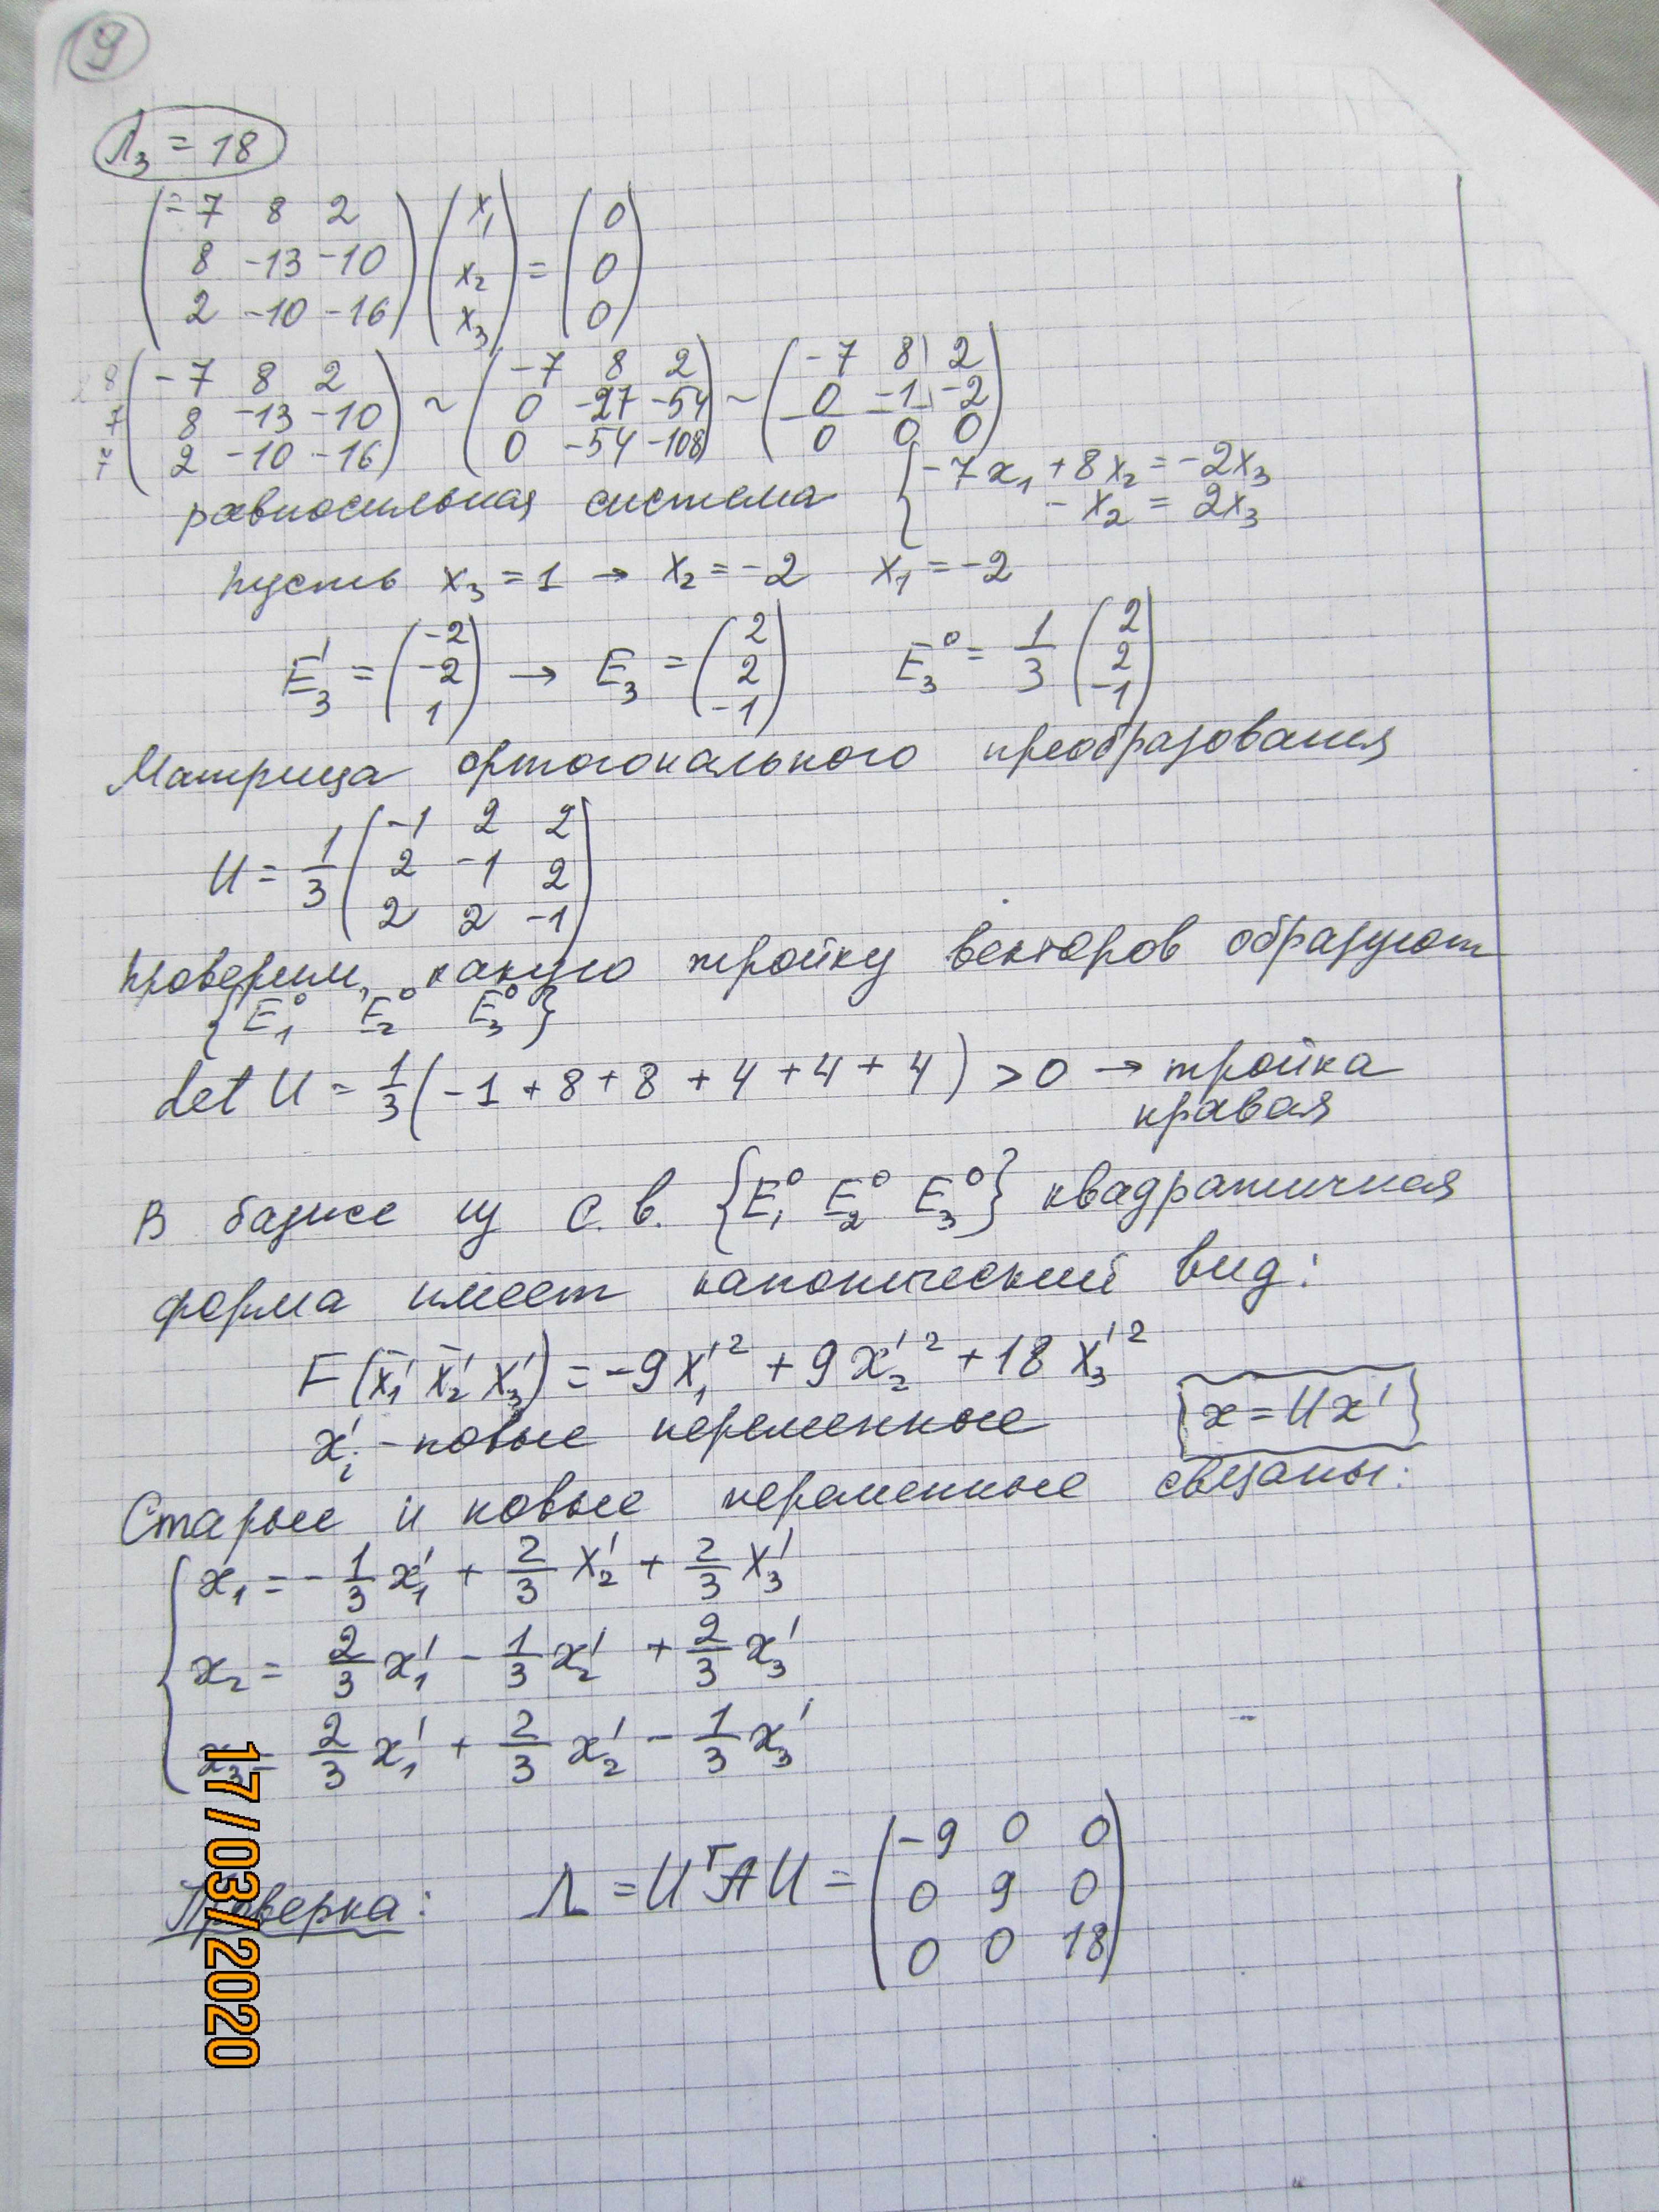 19
λ₃ = 18
(-7 8 2; 8 -13 -10; 2 -10 -16) (x₁; x₂; x₃) = (0; 0; 0)
(-7 8 2; 8 -13 -10; 2 -10 -16) ~ (-7 8 2; 0 -27 -54; 0 -54 -108) ~ (-7 8 2; 0 -1 -2; 0 0 0)
равносильная система { -7x₁ + 8x₂ = -2x₃
- x₂ = 2x₃
пусть x₃ = 1 → x₂ = -2 x₁ = -2
E₃' = (-2; -2; 1) → E₃ = (2; 2; -1) E₃⁰ = 1/3 (2; 2; -1)
Матрица ортогонального преобразования
U = 1/3 (-1 2 2; 2 -1 2; 2 2 -1)
проверим, какую тройку векторов образуют
{E₁⁰ E₂⁰ E₃⁰}
det U = 1/3 (-1 + 8 + 8 + 4 + 4 + 4) > 0 → тройка
правая
В базисе из с.в. {E₁⁰ E₂⁰ E₃⁰} квадратичная
форма имеет канонический вид:
F(x₁' x₂' x₃') = -9x₁'² + 9x₂'² + 18x₃'²
x'ᵢ - новые переменные {x = Ux'}
Старые и новые переменные связаны:
{ x₁ = -1/3 x₁' + 2/3 x₂' + 2/3 x₃'
x₂ = 2/3 x₁' - 1/3 x₂' + 2/3 x₃'
x₃ = 2/3 x₁' + 2/3 x₂' - 1/3 x₃'
Проверка: Λ = UᵀAU = (-9 0 0; 0 9 0; 0 0 18)
17/03/2020